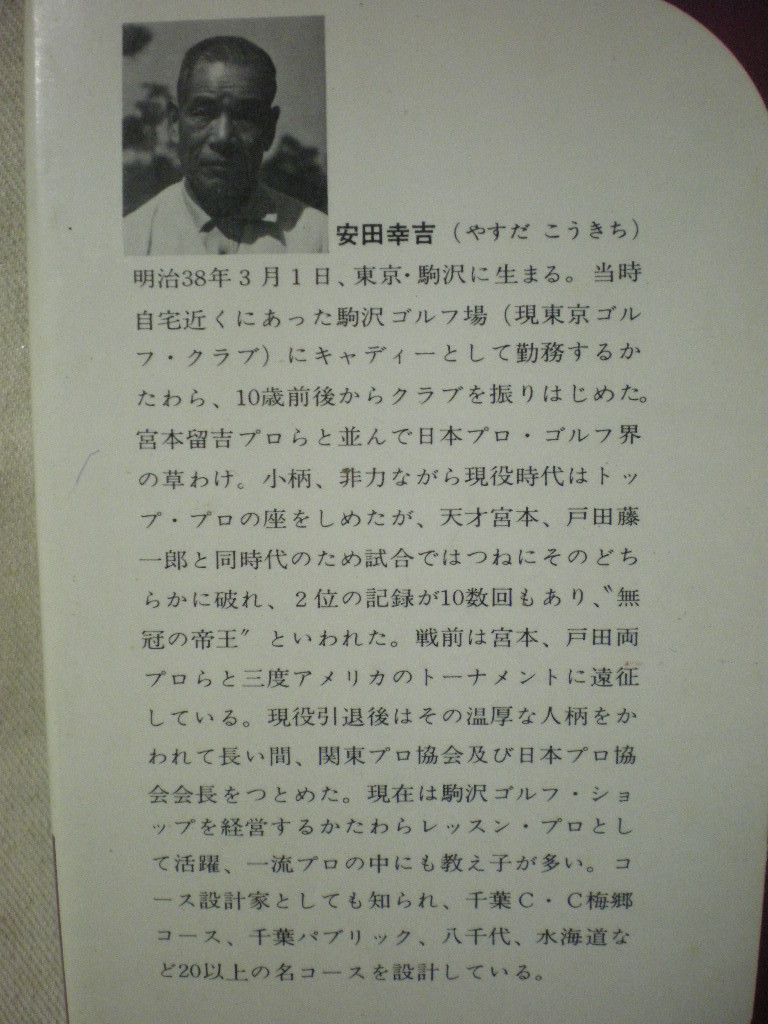 安田幸吉（やすだ こうきち）
明治38年3月1日、東京・駒沢に生まる。当時
自宅近くにあった駒沢ゴルフ場（現東京ゴル
フ・クラブ）にキャディーとして勤務するか
たわら、10歳前後からクラブを振りはじめた。
宮本留吉プロらと並んで日本プロ・ゴルフ界
の草わけ。小柄、非力ながら現役時代はトッ
プ・プロの座をしめたが、天才宮本、戸田藤
一郎と同時代のため試合ではつねにそのどち
らかに破れ、2位の記録が10数回もあり、〝無
冠の帝王〞といわれた。戦前は宮本、戸田両
プロらと三度アメリカのトーナメントに遠征
している。現役引退後はその温厚な人柄をか
われて長い間、関東プロ協会及び日本プロ協
会会長をつとめた。現在は駒沢ゴルフ・ショ
ップを経営するかたわらレッスン・プロとし
て活躍、一流プロの中にも教え子が多い。コ
ース設計家としても知られ、千葉C・C梅郷
コース、千葉パブリック、八千代、水海道な
ど20以上の名コースを設計している。